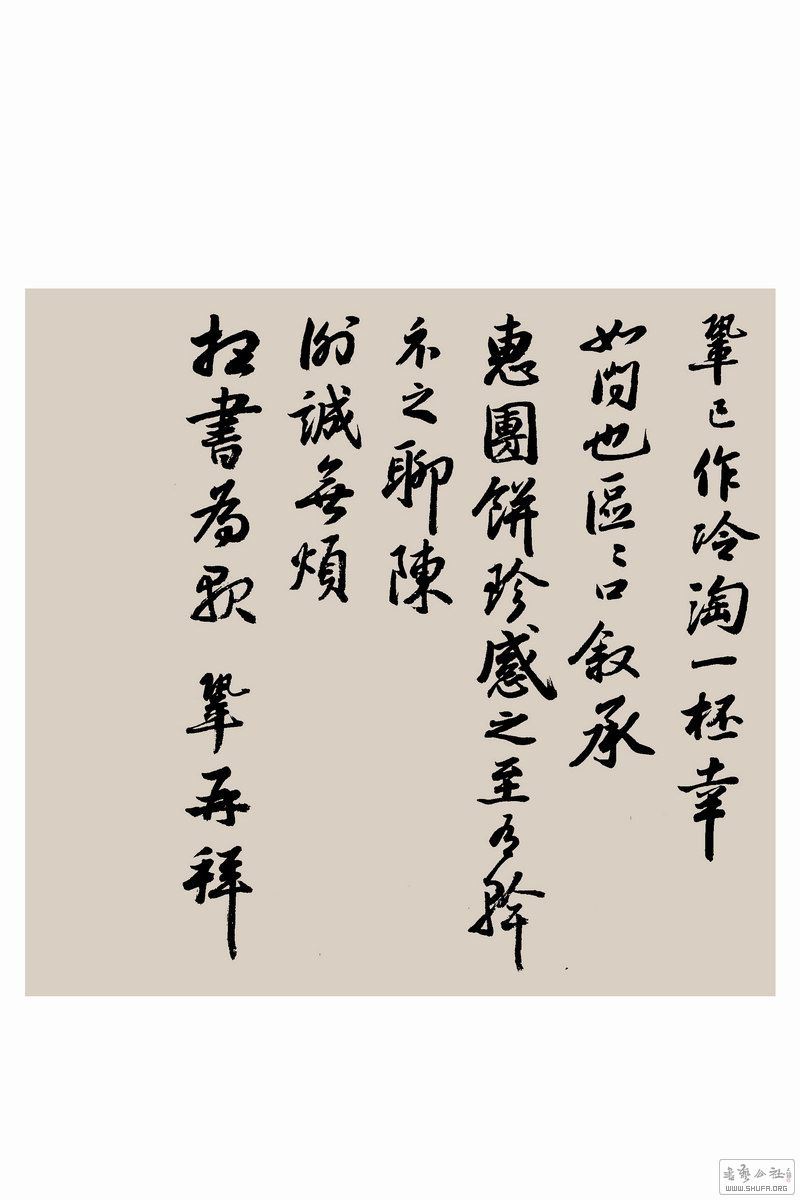 鞏已作冷淘一杯幸
如問也區〻口敘承
惠團餅珍感之至有幹
示之聊陳
謝誠無煩
書為
鞏再拜
書藝公社
WWW.SHUFA.ORG